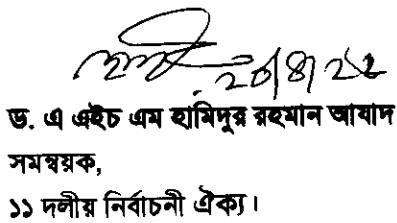 ড. এ এইচ এম হামিদুর রহমান আযাদ
সমন্বয়ক,
১১ দলীয় নির্বাচনী ঐক্য।